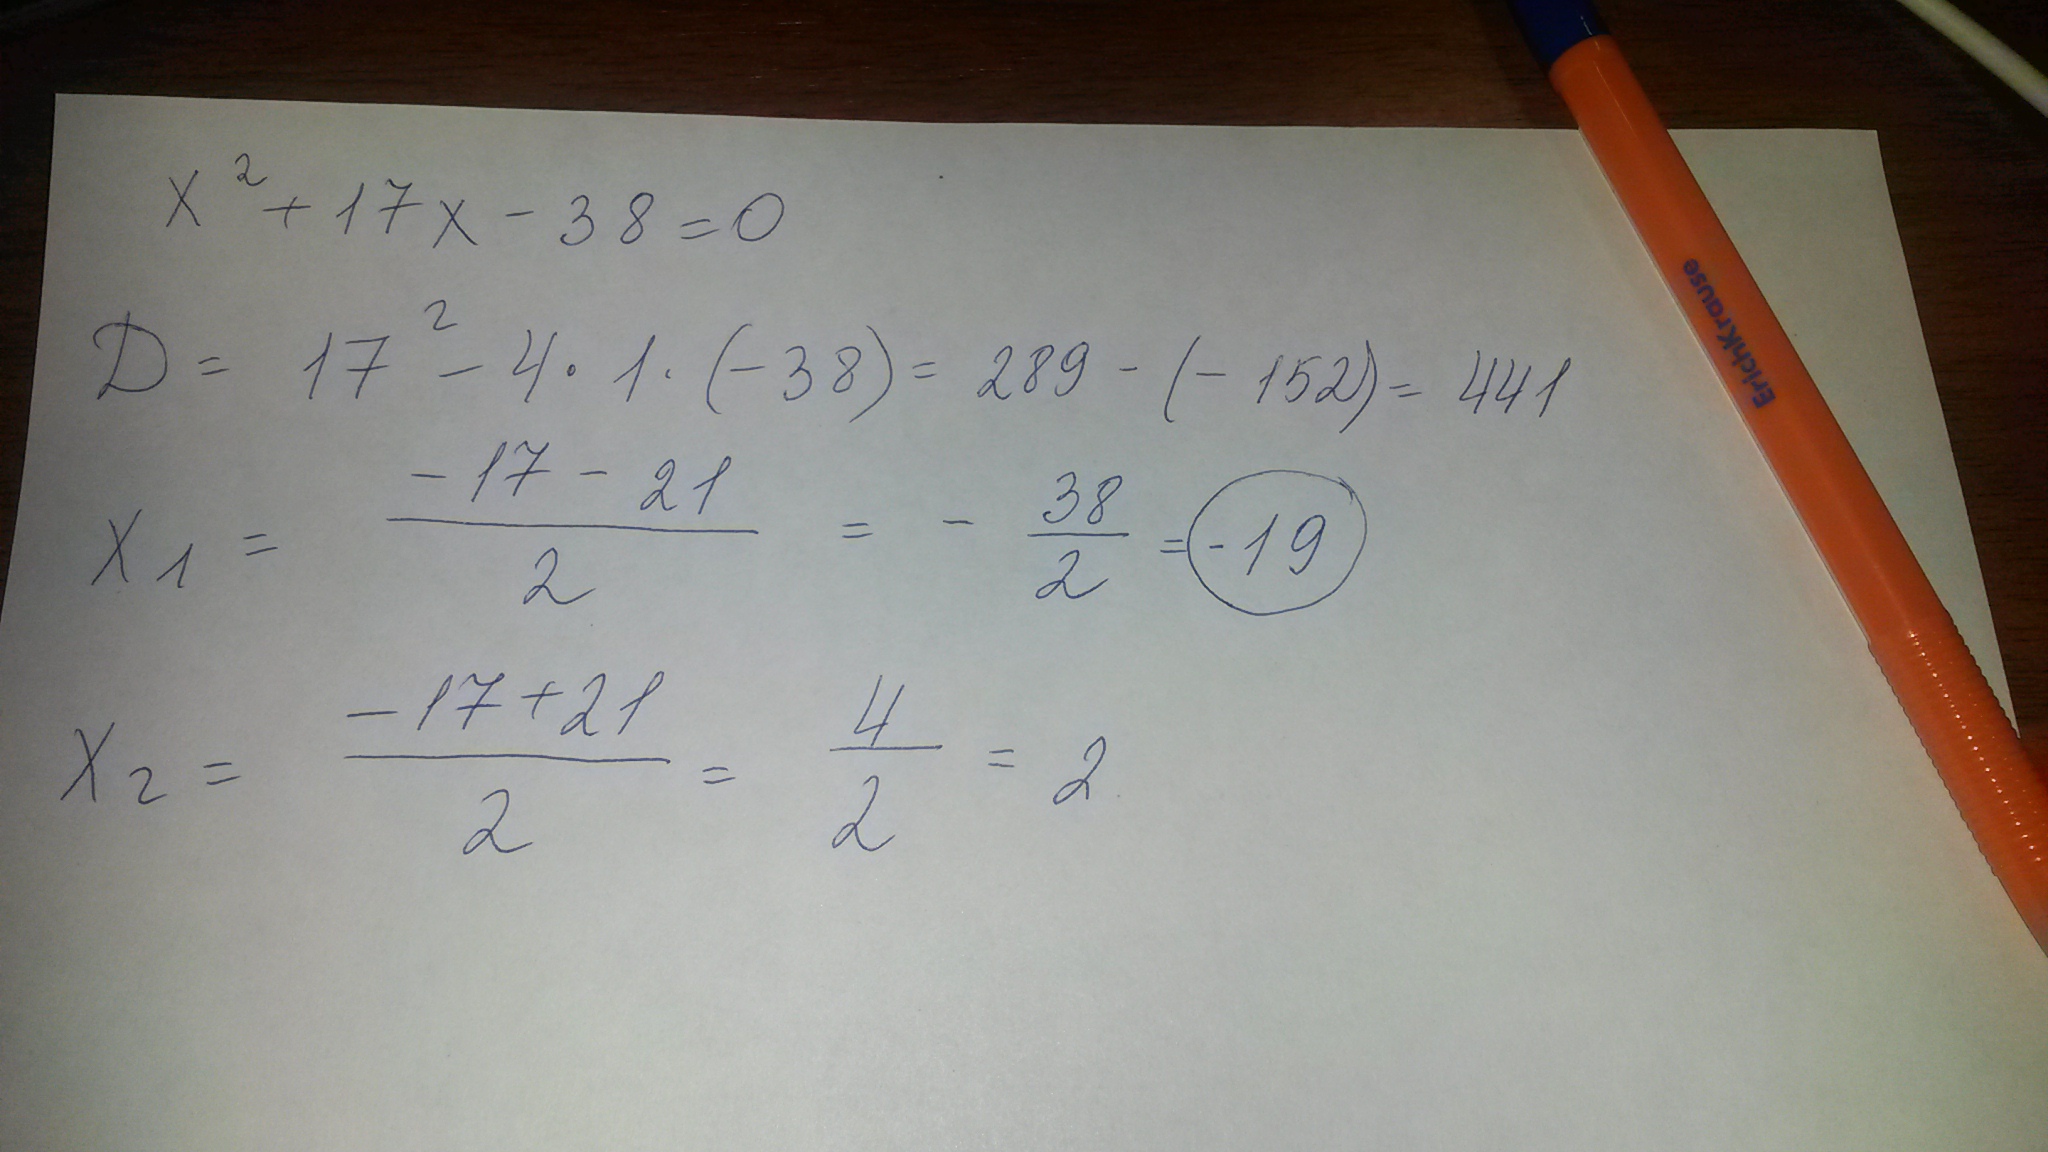 x² + 17x - 38 = 0
D = 17² - 4 · 1 · (-38) = 289 - (-152) = 441
x₁ = (-17 - 21)/2 = - 38/2 = -19
x₂ = (-17 + 21)/2 = 4/2 = 2
ErichKrause